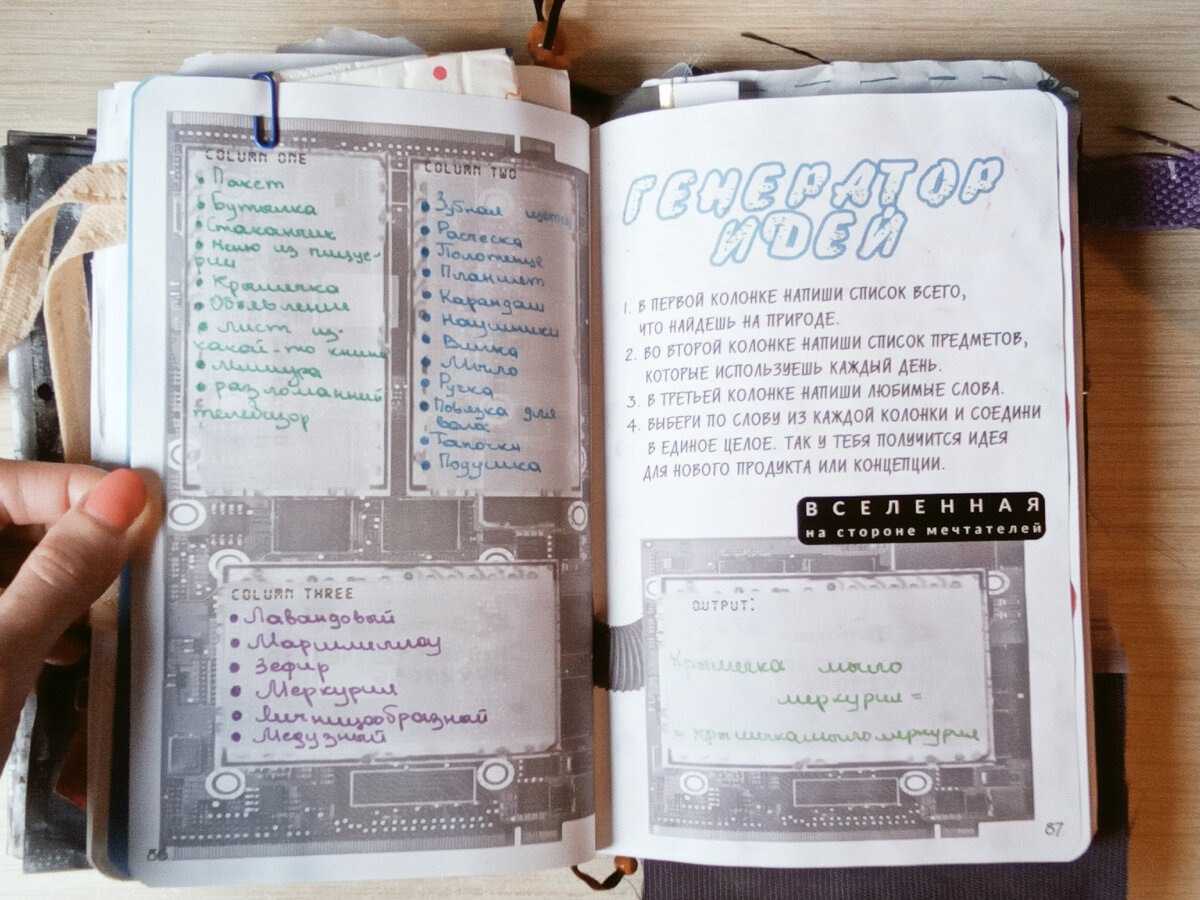 COLUMN ONE
• Пакет
• Бутылка
• Стаканчик
• Меню из пицце-
рии
• Крышечка
• Объявление
• лист из
какой-то книги
• Мишура
• разломанний
телевизор
COLUMN TWO
• Зубная щётка
• Расческа
• Полотенце
• Планшет
• Карандаш
• Наушники
• Вилка
• Мыло
• Ручка
• Повязка для
волос
• Тапочки
• Подушка
COLUMN THREE
• Лавандовый
• Маршмеллоу
• Зефир
• Меркурия
• Яичницообразный
• Медузный
86
ГЕНЕРАТОР
ИДЕЙ
1. В ПЕРВОЙ КОЛОНКЕ НАПИШИ СПИСОК ВСЕГО,
ЧТО НАЙДЕШЬ НА ПРИРОДЕ.
2. ВО ВТОРОЙ КОЛОНКЕ НАПИШИ СПИСОК ПРЕДМЕТОВ,
КОТОРЫЕ ИСПОЛЬЗУЕШЬ КАЖДЫЙ ДЕНЬ.
3. В ТРЕТЬЕЙ КОЛОНКЕ НАПИШИ ЛЮБИМЫЕ СЛОВА.
4. ВЫБЕРИ ПО СЛОВУ ИЗ КАЖДОЙ КОЛОНКИ И СОЕДИНИ
В ЕДИНОЕ ЦЕЛОЕ. ТАК У ТЕБЯ ПОЛУЧИТСЯ ИДЕЯ
ДЛЯ НОВОГО ПРОДУКТА ИЛИ КОНЦЕПЦИИ.
ВСЕЛЕННАЯ
на стороне мечтателей
OUTPUT:
Крышечка мыло
меркурия =
= Крышечкамыломеркурия
87